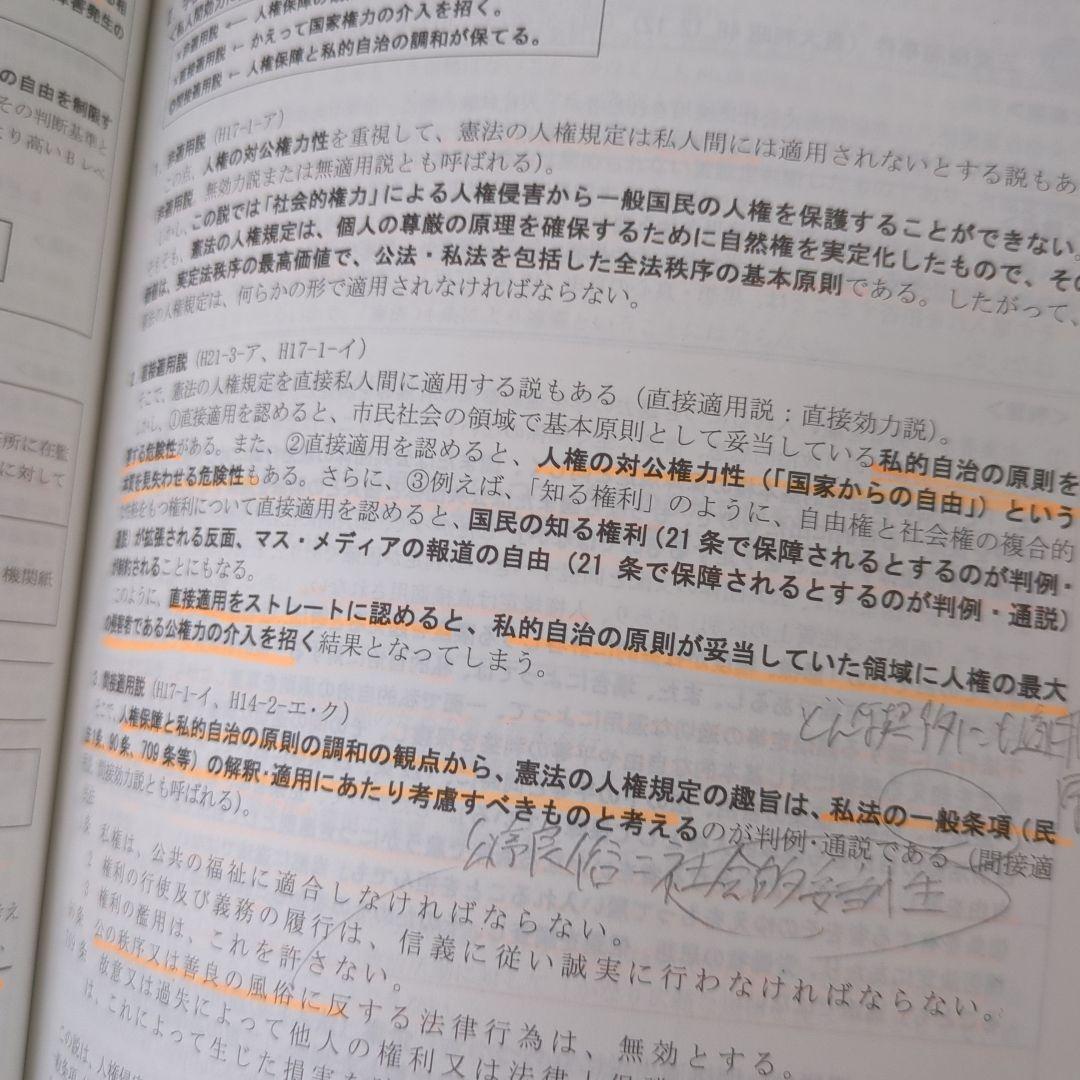 害発生の
の自由を制限す
その判断基準と
より高いBレベ
所に在監
に対して
機関紙
×非適用説 ← かえって国家権力の介入を招く。
◎間接適用説 ← 人権保障と私的自治の調和が保てる。
1. 非適用説 (H17-1-ア)
この点、人権の対公権力性を重視して、憲法の人権規定は私人間には適用されないとする説もあ
(非適用説 無効力説または無適用説とも呼ばれる)。
しかし、この説では「社会的権力」による人権侵害から一般国民の人権を保護することができない。
そもそも、憲法の人権規定は、個人の尊厳の原理を確保するために自然権を実定化したもので、その
価値は、実定法秩序の最高価値で、公法・私法を包括した全法秩序の基本原則である。したがって、
憲法の人権規定は、何らかの形で適用されなければならない。
2. 直接適用説 (H21-3-ア、H17-1-イ)
そこで、憲法の人権規定を直接私人間に適用する説もある (直接適用説:直接効力説)。
しかし、①直接適用を認めると、市民社会の領域で基本原則として妥当している私的自治の原則を
害する危険性がある。また、②直接適用を認めると、人権の対公権力性(「国家からの自由」)という
本質を見失わせる危険性もある。さらに、③例えば、「知る権利」のように、自由権と社会権の複合的
な性格をもつ権利について直接適用を認めると、国民の知る権利 (21条で保障されるとするのが判例・
通説) が拡張される反面、マス・メディアの報道の自由 (21 条で保障されるとするのが判例・通説)
が制約されることにもなる。
このように、直接適用をストレートに認めると、私的自治の原則が妥当していた領域に人権の最大
の侵害者である公権力の介入を招く結果となってしまう。
3. 間接適用説 (H17-1-イ、H14-2-エ・ク)
そこで、人権保障と私的自治の原則の調和の観点から、憲法の人権規定の趣旨は、私法の一般条項 (民
法1条、90条、709条等) の解釈・適用にあたり考慮すべきものと考えるのが判例・通説である (間接適
用説 間接効力説とも呼ばれる)。
公序良俗=社会的妥当性
私権は、公共の福祉に適合しなければならない。
2 権利の行使及び義務の履行は、信義に従い誠実に行わなければならない。
3 権利の濫用は、これを許さない。
90条 公の秩序又は善良の風俗に反する法律行為は、無効とする。
709条 故意又は過失によって他人の権利又は法律上保護
は、これによって生じた損害を
この説は、人権侵